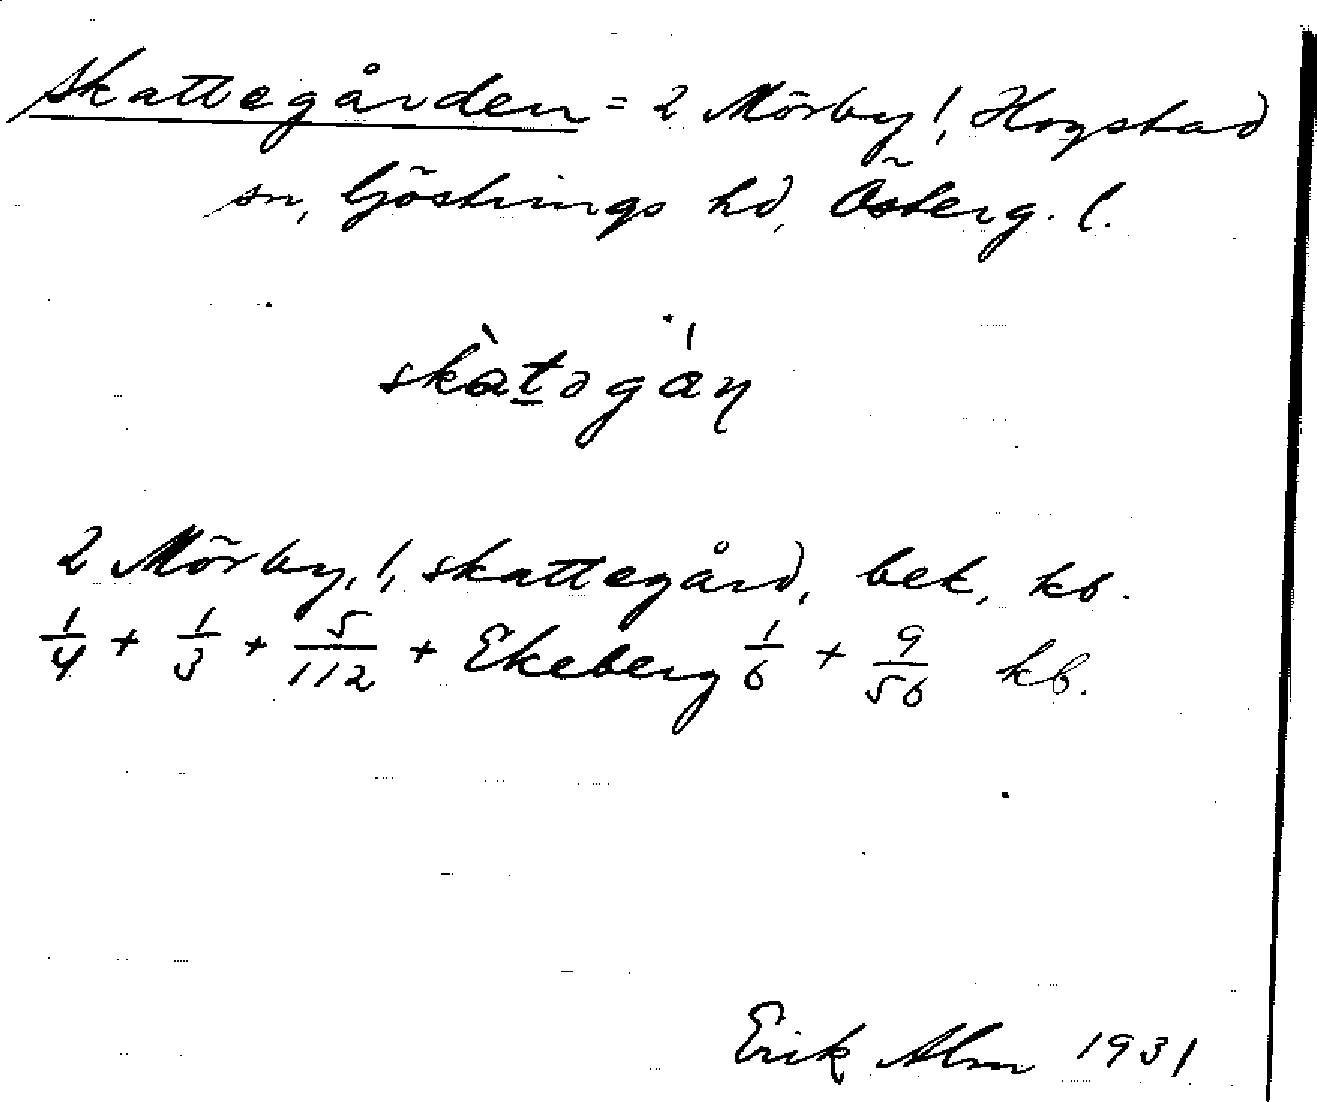 Skattegården = 2 Mörby!, Hogstad
sn, Göstrings hd, Österg. l.
skàtəgáṇ
2 Mörby, !, skattegård, bek, kb.
1/4 + 1/3 + 5/112 + Ekeberg 1/6 + 9/56 kb.
Erik Alm 1931